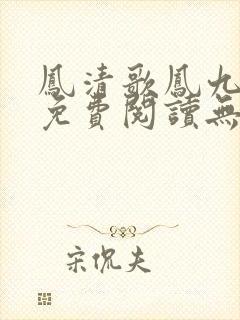 鳳清歌鳳九
免費閱讀無
宋侃夫